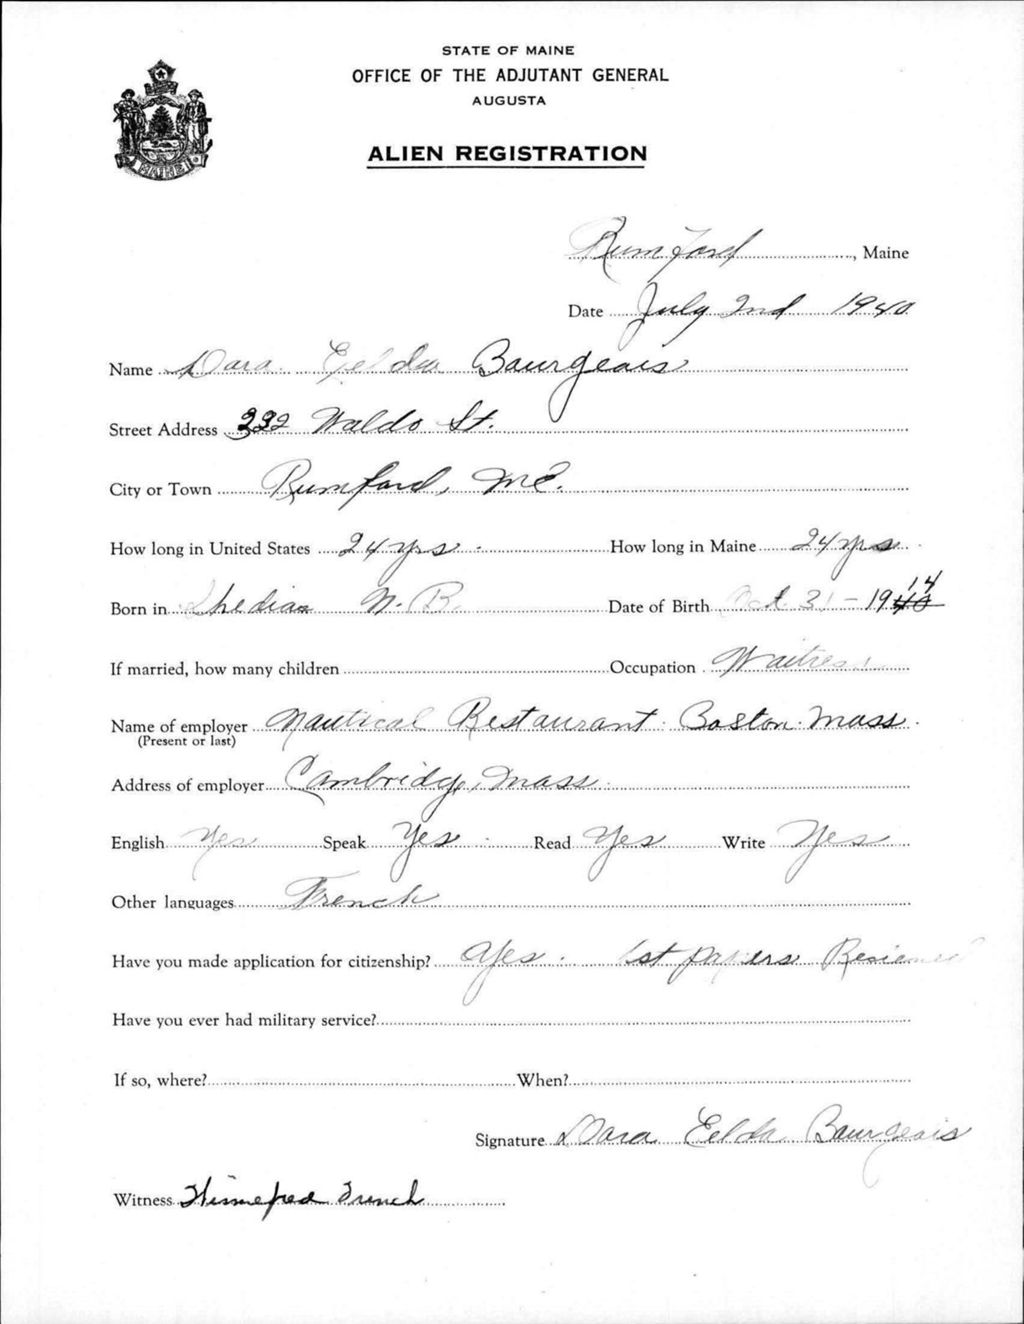 STATE OF MAINE
OFFICE OF THE ADJUTANT GENERAL
AUGUSTA
ALIEN REGISTRATION
MAINE
Rumford, Maine
Date July 2nd 1940
Name Dora Eelda Bourgeois
Street Address 232 Waldo St.
City or Town Rumford, Me.
How long in United States 24 yrs. How long in Maine 24 yrs.
Born in Shediac N.B. Date of Birth Oct 31 - 1914
If married, how many children Occupation Waitress
Name of employer Nautical Restaurant Boston Mass.
(Present or last)
Address of employer Cambridge, Mass.
English Yes Speak Yes Read Yes Write Yes
Other languages French
Have you made application for citizenship? Yes. 1st papers
Have you ever had military service?
If so, where? When?
Signature Dora Eelda Bourgeois
Witness French